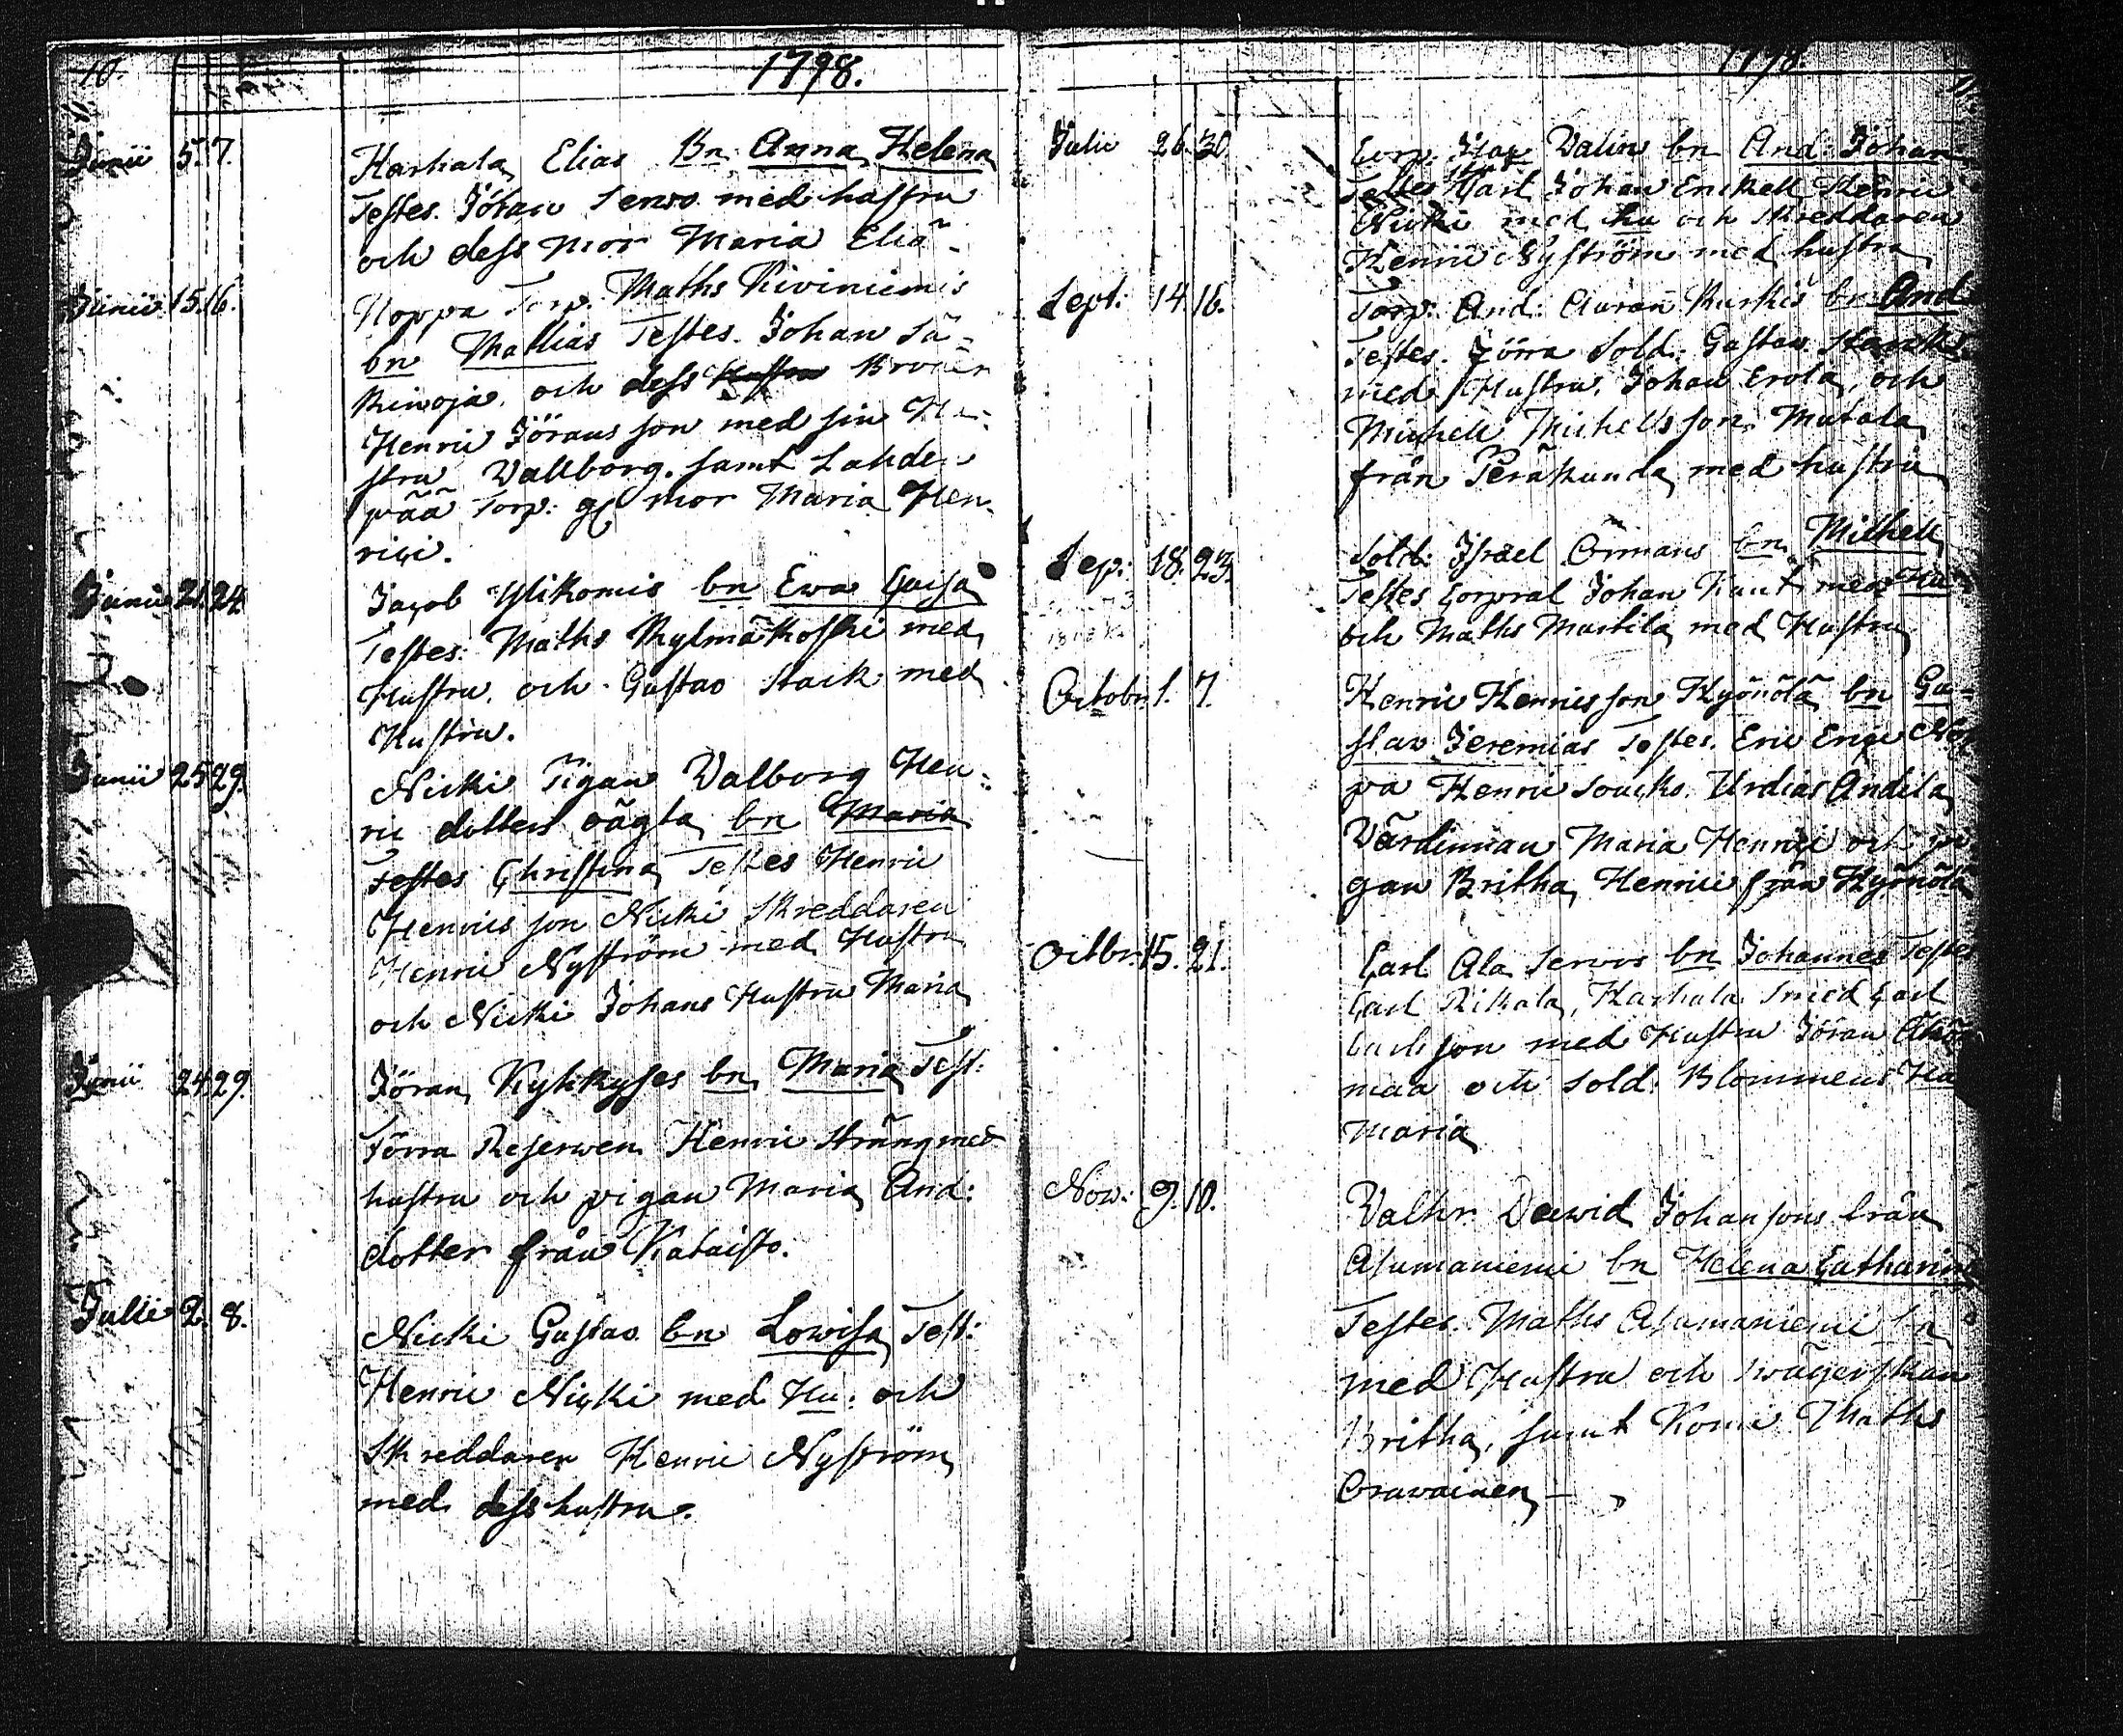 10.
1798.
Junii 5. 7. Karhala Elias Bn Anna Helena
Testes. Jöran Servo med hustru
och dess mor Maria Eliæ
Junii 15 16. Noppa Torp. Maths Kiviniemis
bn Mathias Testes. Johan Sä-
kinoja och dess Hustru Broder
Henric Jörans son med sin Hu-
stru Vallborg. samt Lahden-
pää Torp: mor Maria Hen-
rici.
Junii 21. 24. Jacob Ylikomis bn Ewa Caisa
Testes: Maths Kylmäkoski med
Hustru. och Gustav Stack med
Hustru.
Junii 25 29. Nicki Pigan Valborg Hen-
ric dotters oägta bn Maria
Testes Christina Testes Henric
Henrics son Nicki Skreddaren
Henric Nyström med Hustru
och Nicki Johans Hustru Maria
Junii 24 29. Jöran Kyhkyses bn Maria Test:
Förra Reserven Henric Sträng med
hustru och pigan Maria And:
dotter från Kataisto.
Julii 2. 8. Nicki Gustav bn Lowisa Test:
Henric Nicki med Hu: och
Skreddaren Henric Nyström
med dess hustru.
1798
Julii 26. 30 Corp: Isac Valin bn And: Johan
Testes Carl Johan Enckell Henric
Nicki med hu och Skreddaren
Henric Nyström med hustru
Sept: 14. 16. Torp: And: bn And
Testes. Förra Sold: Gustav Starck
med Hustru, Johan Erola, och
Michell Michells son Mutala
från Peräkunda med hustru
Sep: 18. 23. Sold: Israel Ormans bn Michell
Testes Corporal Johan Kant med Hu
och Maths Martila med Hustru
Octobr 1. 7. Henric Henrics son Kyönölä bn Gu-
stav Jeremias Testes. Eric Erici Nop
pa Henric Andila
Värdinnan Maria Henrici och pi
gan Britha Henrici från Kyönölä
Octbr. 15. 21. Carl Ala Servos bn Johannes Testes
Carl Rikala, Karhala Smed Carl
Carls son med Hustru Jöran
maa och Sold: Blommens Hu
Maria
Nov: 9. 10. Valhr David Johansons från
Asumaniemi bn Helena Catharina
Testes. Maths Asumaniemi
med Hustru och Svägerskan
Britha, samt Komi Maths
Oravainen